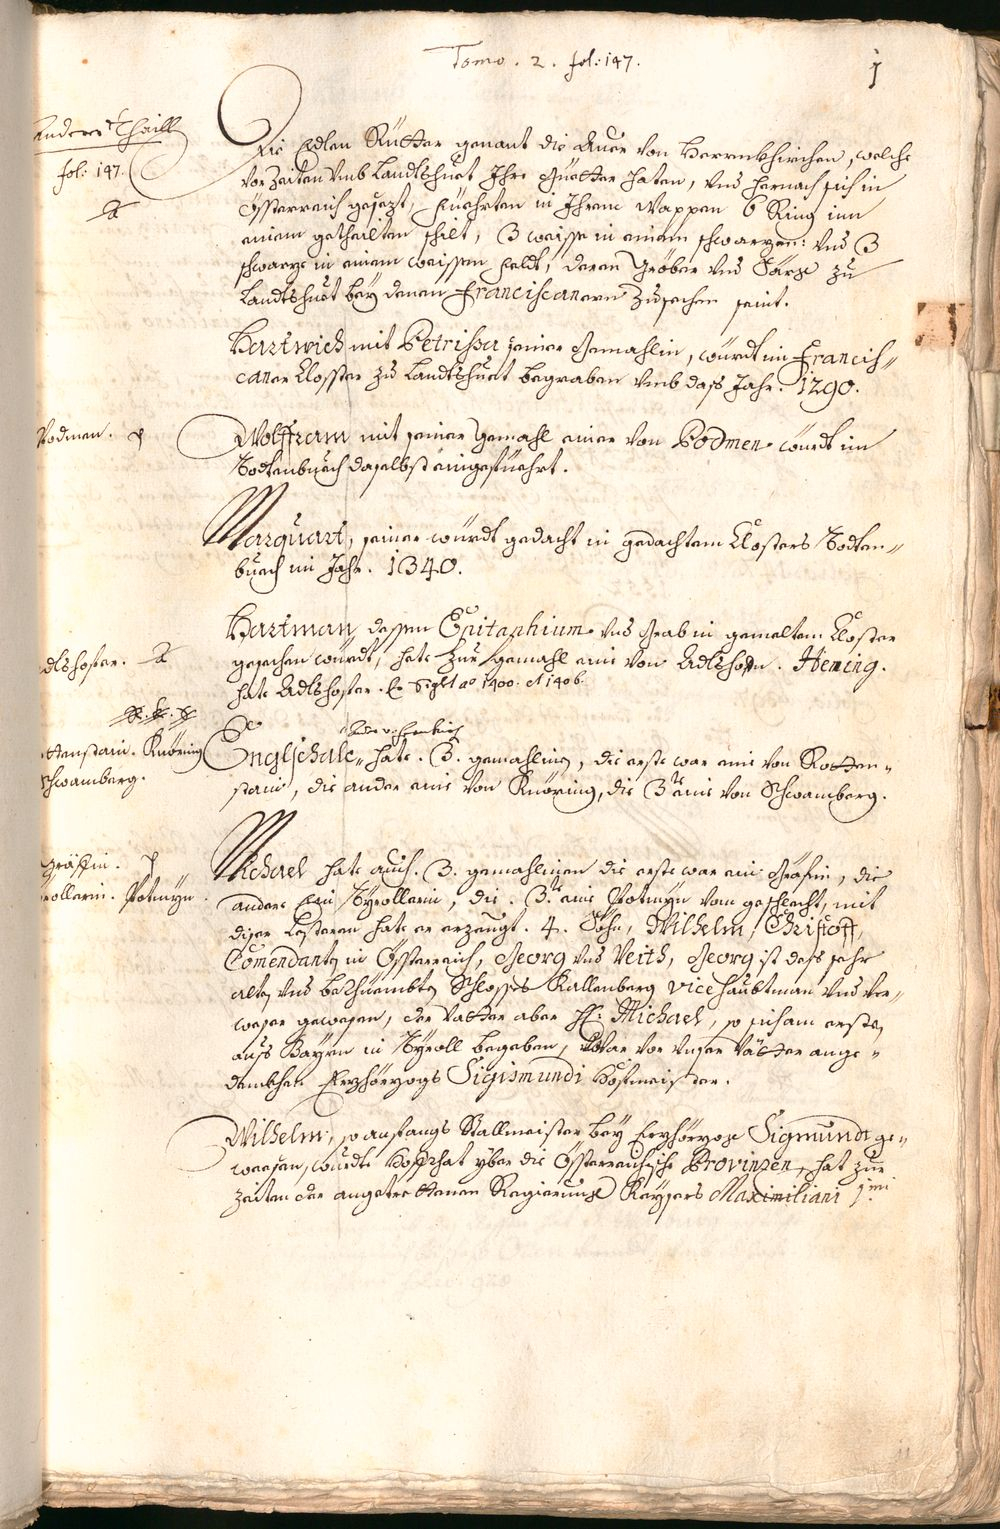 Tomo. 2. fol: 147.
1
Anderer Thaill
fol: 147.
Die Edlen Ritter genant die Auer von Herrenkhirchen, welche
vor Zeiten vmb Landtshuet Ihre Güetter haten, vnd hernach sich in
Össterreich gesezt, füehrten in Ihrem Wappen 6 Ring inn
einem getheilten schilt, 3 weisse in einem schwarzen: vnd 3
schwarze in einem weissen feldt, deren Gröber vnd Särge zu
Landtshuet bey denen Franciscanern zusechen seint.
Hartwich mit Petrissa seiner Gemahlin, würdt im Francis=
caner Closster zu Landtshuet begraben vmb dass Jahr. 1290.
Podmen.
Wolffram mit seiner Gemahl einer von Podmen würdt im
Todtenbuech daselbst eingefüehrt.
Marquart, seiner würdt gedacht in gedachtem Closters Todten=
buech im Jahr. 1340.
Hartman, dessen Epitaphium vnd Grab in gemeltem Closter
gesechen würdt, hate zur gemahl eine von Adlshofen. Heming.
hate Adlshofer. 1400. et 1406.
Adlshofer.
Englschalc hate. 3. gemahlinen, die erste war eine von Rotten=
stain, die ander eine von Knöring, die 3te eine von Schwamberg.
Rottenstain. Knöring
Schwamberg.
Michael hate auch. 3. gemahlinen die erste war ein Gräfin, die
andere Ein Tyrollerin, die. 3te eine Potmyn vom geschlecht, mit
diser lesteren hate er erzeugt. 4. Söhn, Wilhelm, Christoff,
Comendanten in Össterreich, Georg vnd Veith, Georg ist dess sehr
alten vnd berhüembten Schlosses Kallenberg vice haubtman vnd ver=
weser gewesen, der Vatter aber H: Michael, so sich am ersten
auss Bayrn in Tyroll begeben, war vor vnser Vätter ange=
denkhen Erzhörzogs Sigismundi Hoffmeister.
Gräffin.
Tyrollerin. Potmyn.
Wilhelm, so anfangs Stallmeister bey Erzhörzog Sigmundt ge=
wesen, wurdte Hoffrhat yber die Össterreichische Provinzen, hat zur
zeiten der angetrettenen Regierung Kaysers Maximiliani 1mi